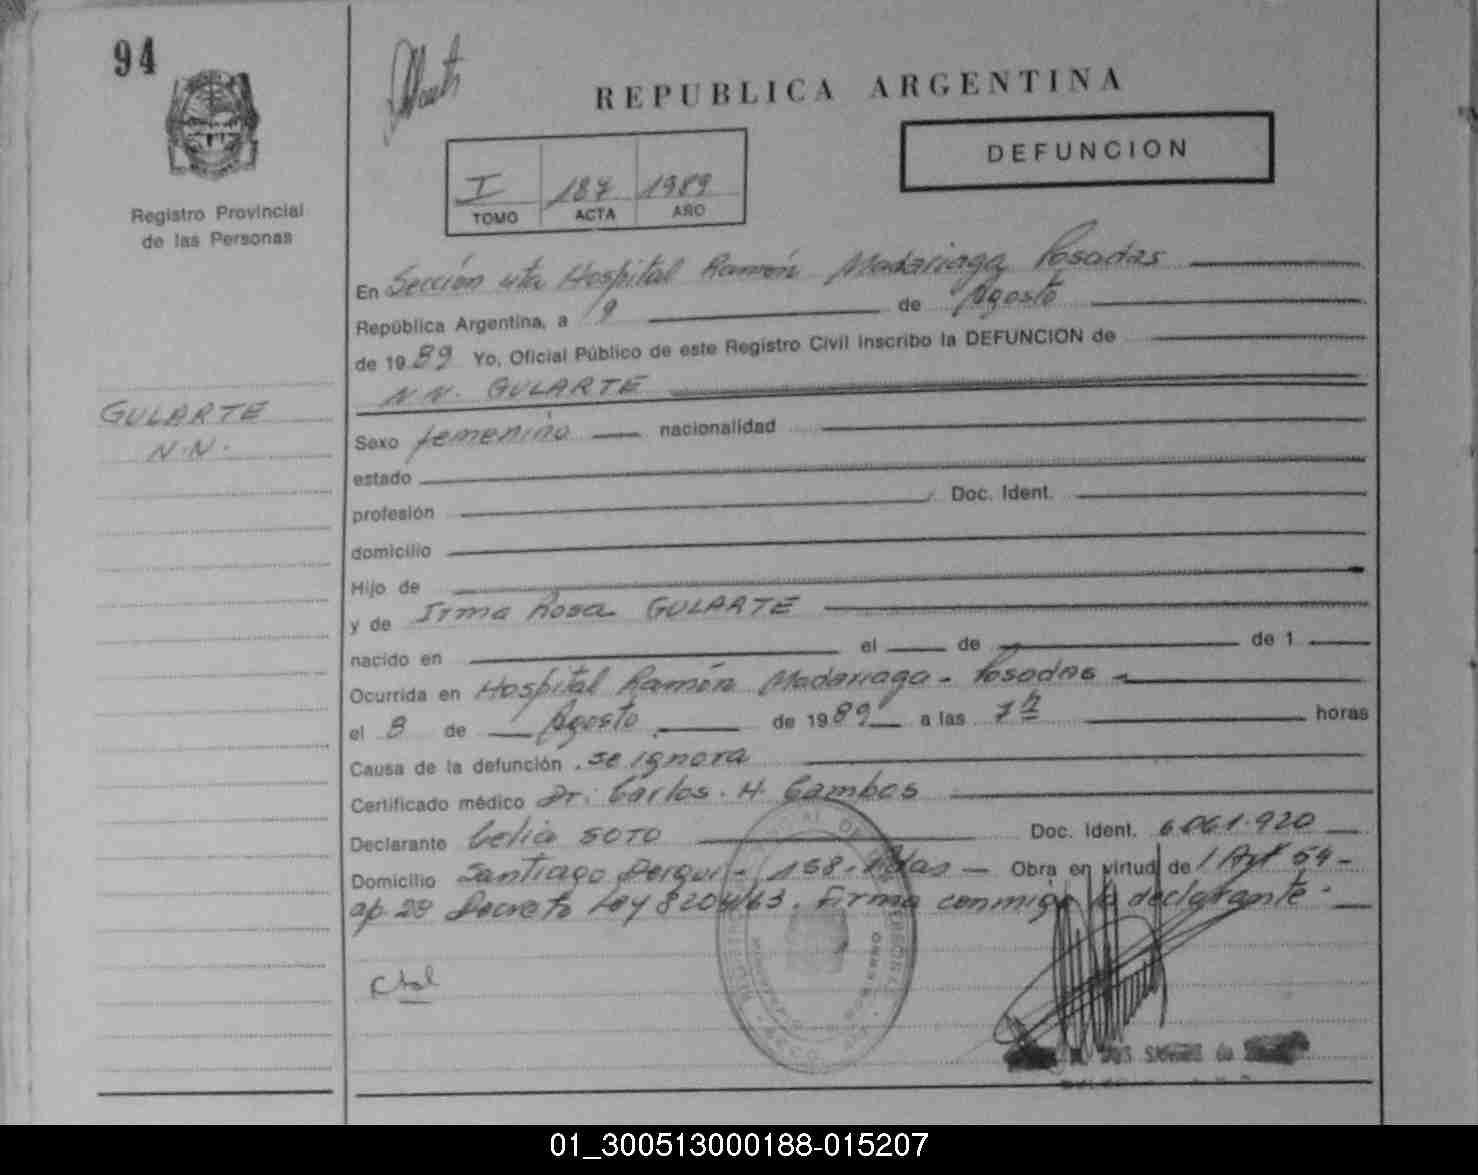 94
REPUBLICA ARGENTINA
DEFUNCION
I 187 1989
TOMO ACTA AÑO
Registro Provincial
de las Personas
En Sección 4ta Hospital Ramón Madariaga Posadas
República Argentina, a 9 de Agosto
de 19 89 Yo, Oficial Público de este Registro Civil inscribo la DEFUNCION de
N.N. GULARTE
GULARTE
N.N.
Sexo femenino nacionalidad
estado
profesión Doc. Ident.
domicilio
Hijo de
y de Irma Rosa GULARTE
nacido en el de de 1
Ocurrida en Hospital Ramón Madariaga - Posadas -
el 8 de Agosto de 19 89 a las 7 h horas
Causa de la defunción se ignora
Certificado médico Dr. Carlos H. Cambos
Declarante Celia SOTO Doc. Ident. 6.061.920
Domicilio Santiago Derqui - 158 - Pdas - Obra en virtud de l Art 54 -
ap. 2º Decreto Ley 8204/63. Firma conmigo la declarante.
01_300513000188-015207